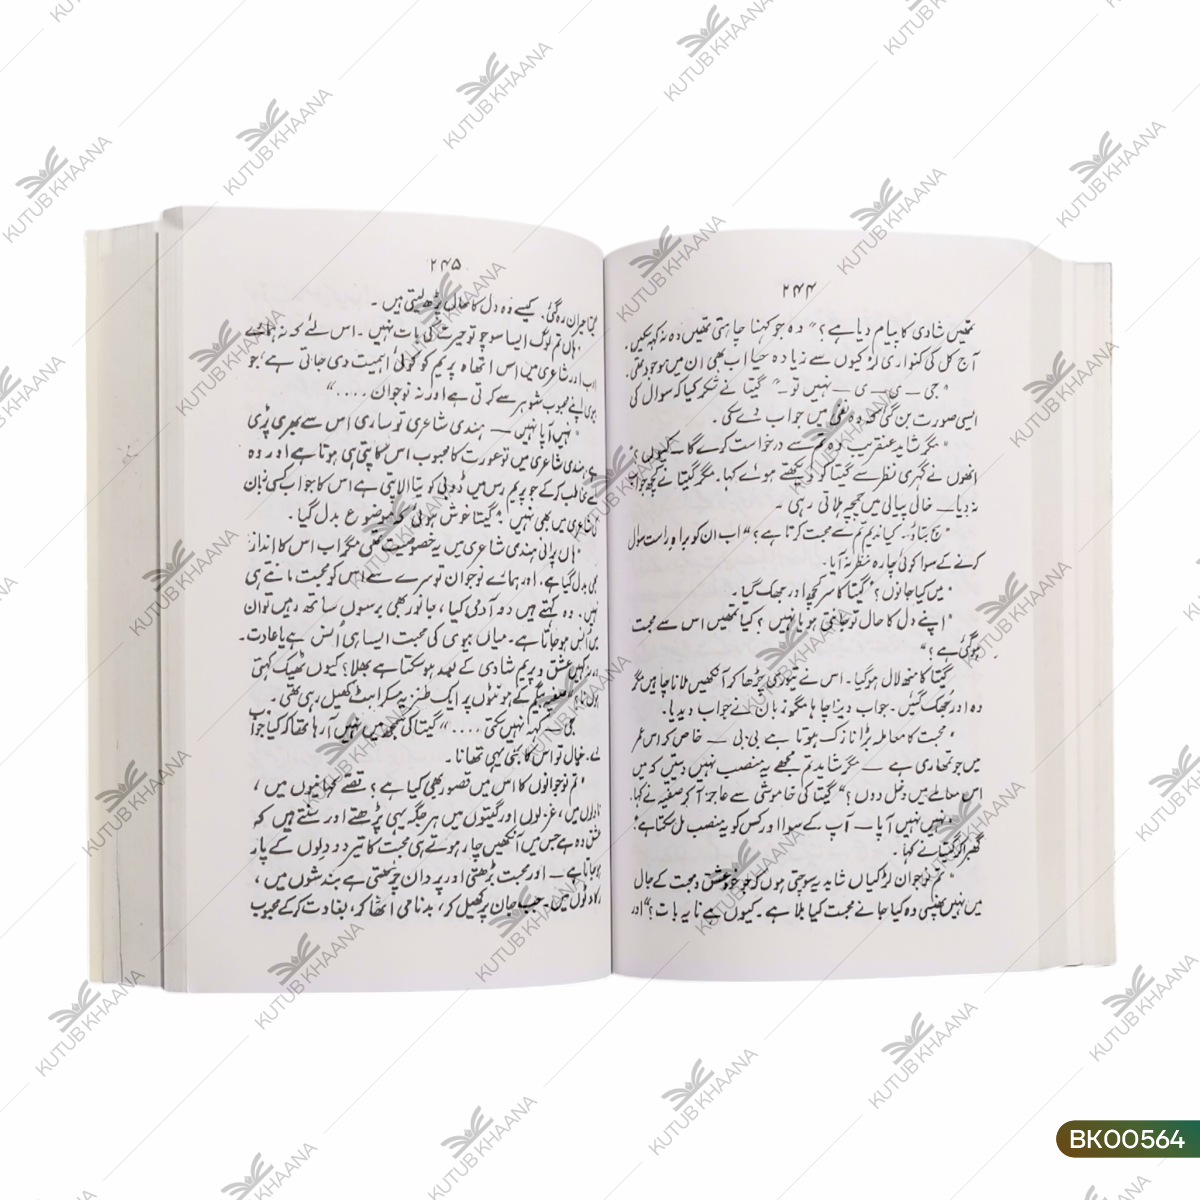 ۲۴۴
تمھیں شادی کا پیام دیا ہے؟" وہ جو کہنا چاہتی تھیں وہ نہ کہہ سکیں.
آج کل کی کنواری لڑکیوں سے زیادہ حیا اب بھی ان میں موجود تھی.
"جی — ی — ی — نہیں تو —" گیتا نے شکر کیا کہ سوال کی
ایسی صورت بن گئی کہ وہ نفی میں جواب دے سکی.
"مگر شاید عنقریب وہ تم سے درخواست کرے گا — کیوں؟"
انھوں نے گہری نظر سے گیتا کو دیکھتے ہوئے کہا. مگر گیتا نے کچھ جواب
نہ دیا — خالی پیالی میں چمچہ ہلاتی رہی.
"سچ بتاؤ. کیا ندیم تم سے محبت کرتا ہے؟" اب ان کو براہ راست سوال
کرنے کے سوا کوئی چارہ نظر نہ آیا.
"میں کیا جانوں؟" گیتا کا سر کچھ اور جھک گیا.
"اپنے دل کا حال تو جانتی ہو یا نہیں؟ کیا تمھیں اس سے محبت
ہو گئی ہے؟"
گیتا کا منھ لال ہو گیا. اس نے تیوری چڑھا کر آنکھیں ملانا چاہیں مگر
وہ اور جھک گئیں. جواب دینا چاہا مگر زبان نے جواب دیدیا.
"محبت کا معاملہ بڑا نازک ہوتا ہے بی بی — خاص کر اس عمر
میں جو تمھاری ہے — مگر شاید تم مجھے یہ منصب نہیں دیتیں کہ میں
اس معاملے میں دخل دوں؟" گیتا کی خاموشی سے عاجز آ کر صفیہ نے کہا.
"نہیں نہیں آپا — آپ کے سوا اور کس کو یہ منصب مل سکتا ہے."
گھبرا کر گیتا نے کہا.
"تم نوجوان لڑکیاں شاید یہ سوچتی ہوں کہ جو خود عشق و محبت کے جال
میں نہیں پھنسی وہ کیا جانے محبت کیا بلا ہے. کیوں ہے نا یہ بات؟" اور
۲۴۵
گیتا حیران رہ گئی. کیسے وہ دل کا حال پڑھ لیتی ہیں.
"ہاں تم لوگ ایسا سوچو تو حیرت کی بات نہیں. اس لئے کہ نہ ہمارے
ادب اور شاعری میں اس اتھاہ پریم کو کوئی اہمیت دی جاتی ہے جو
بیوی اپنے محبوب شوہر سے کرتی ہے اور نہ نوجوان ...."
"نہیں آپا نہیں — ہندی شاعری تو ساری اس سے بھری پڑی
ہے. ہندی شاعری میں تو عورت کا محبوب اس کا پتی ہی ہوتا ہے اور وہ
اسے مخاطب کر کے جو پریم رس میں ڈوبی کویتا الاپتی ہے اس کا جواب کسی زبان
کی شاعری میں بھی نہیں" گیتا خوش ہوئی کہ موضوع بدل گیا.
"ہاں پرانی ہندی شاعری میں یہ خصوصیت تھی مگر اب اس کا انداز
بھی بدل گیا ہے. اور ہمارے نوجوان تو سرے سے اس کو محبت مانتے ہی
نہیں. وہ کہتے ہیں دو آدمی کیا، جانور بھی برسوں ساتھ رہیں تو ان
میں انس ہو جاتا ہے. میاں بیوی کی محبت ایسا ہی اُنس ہے یا عادت.
ورنہ کہیں عشق و پریم شادی کے بعد ہو سکتا ہے بھلا؟ کیوں ٹھیک کہتی
ہوں نا؟" صفیہ بیگم کے ہونٹوں پر ایک طنزیہ مسکراہٹ کھیل رہی تھی.
"جی — کہہ نہیں سکتی ...." گیتا کی سمجھ میں نہیں آرہا تھا کہ کیا جواب
دے. خیال تو اس کا بھی یہی تھا نا.
"تم نوجوانوں کا اس میں قصور بھی کیا ہے؟ قصے کہانیوں میں،
ناولوں میں، غزلوں اور گیتوں میں ہر جگہ یہی پڑھتے اور سنتے ہیں کہ
عشق وہ ہے جس میں آنکھیں چار ہوتے ہی محبت کا تیر دو دلوں کے پار
ہو جاتا ہے — اور محبت بڑھتی اور پروان چڑھتی ہے بندشوں میں،
رکاوٹوں میں. جب جان پر کھیل کر، بدنامی اٹھا کر، بغاوت کر کے محبوب
KUTUB KHAANA
BK00564